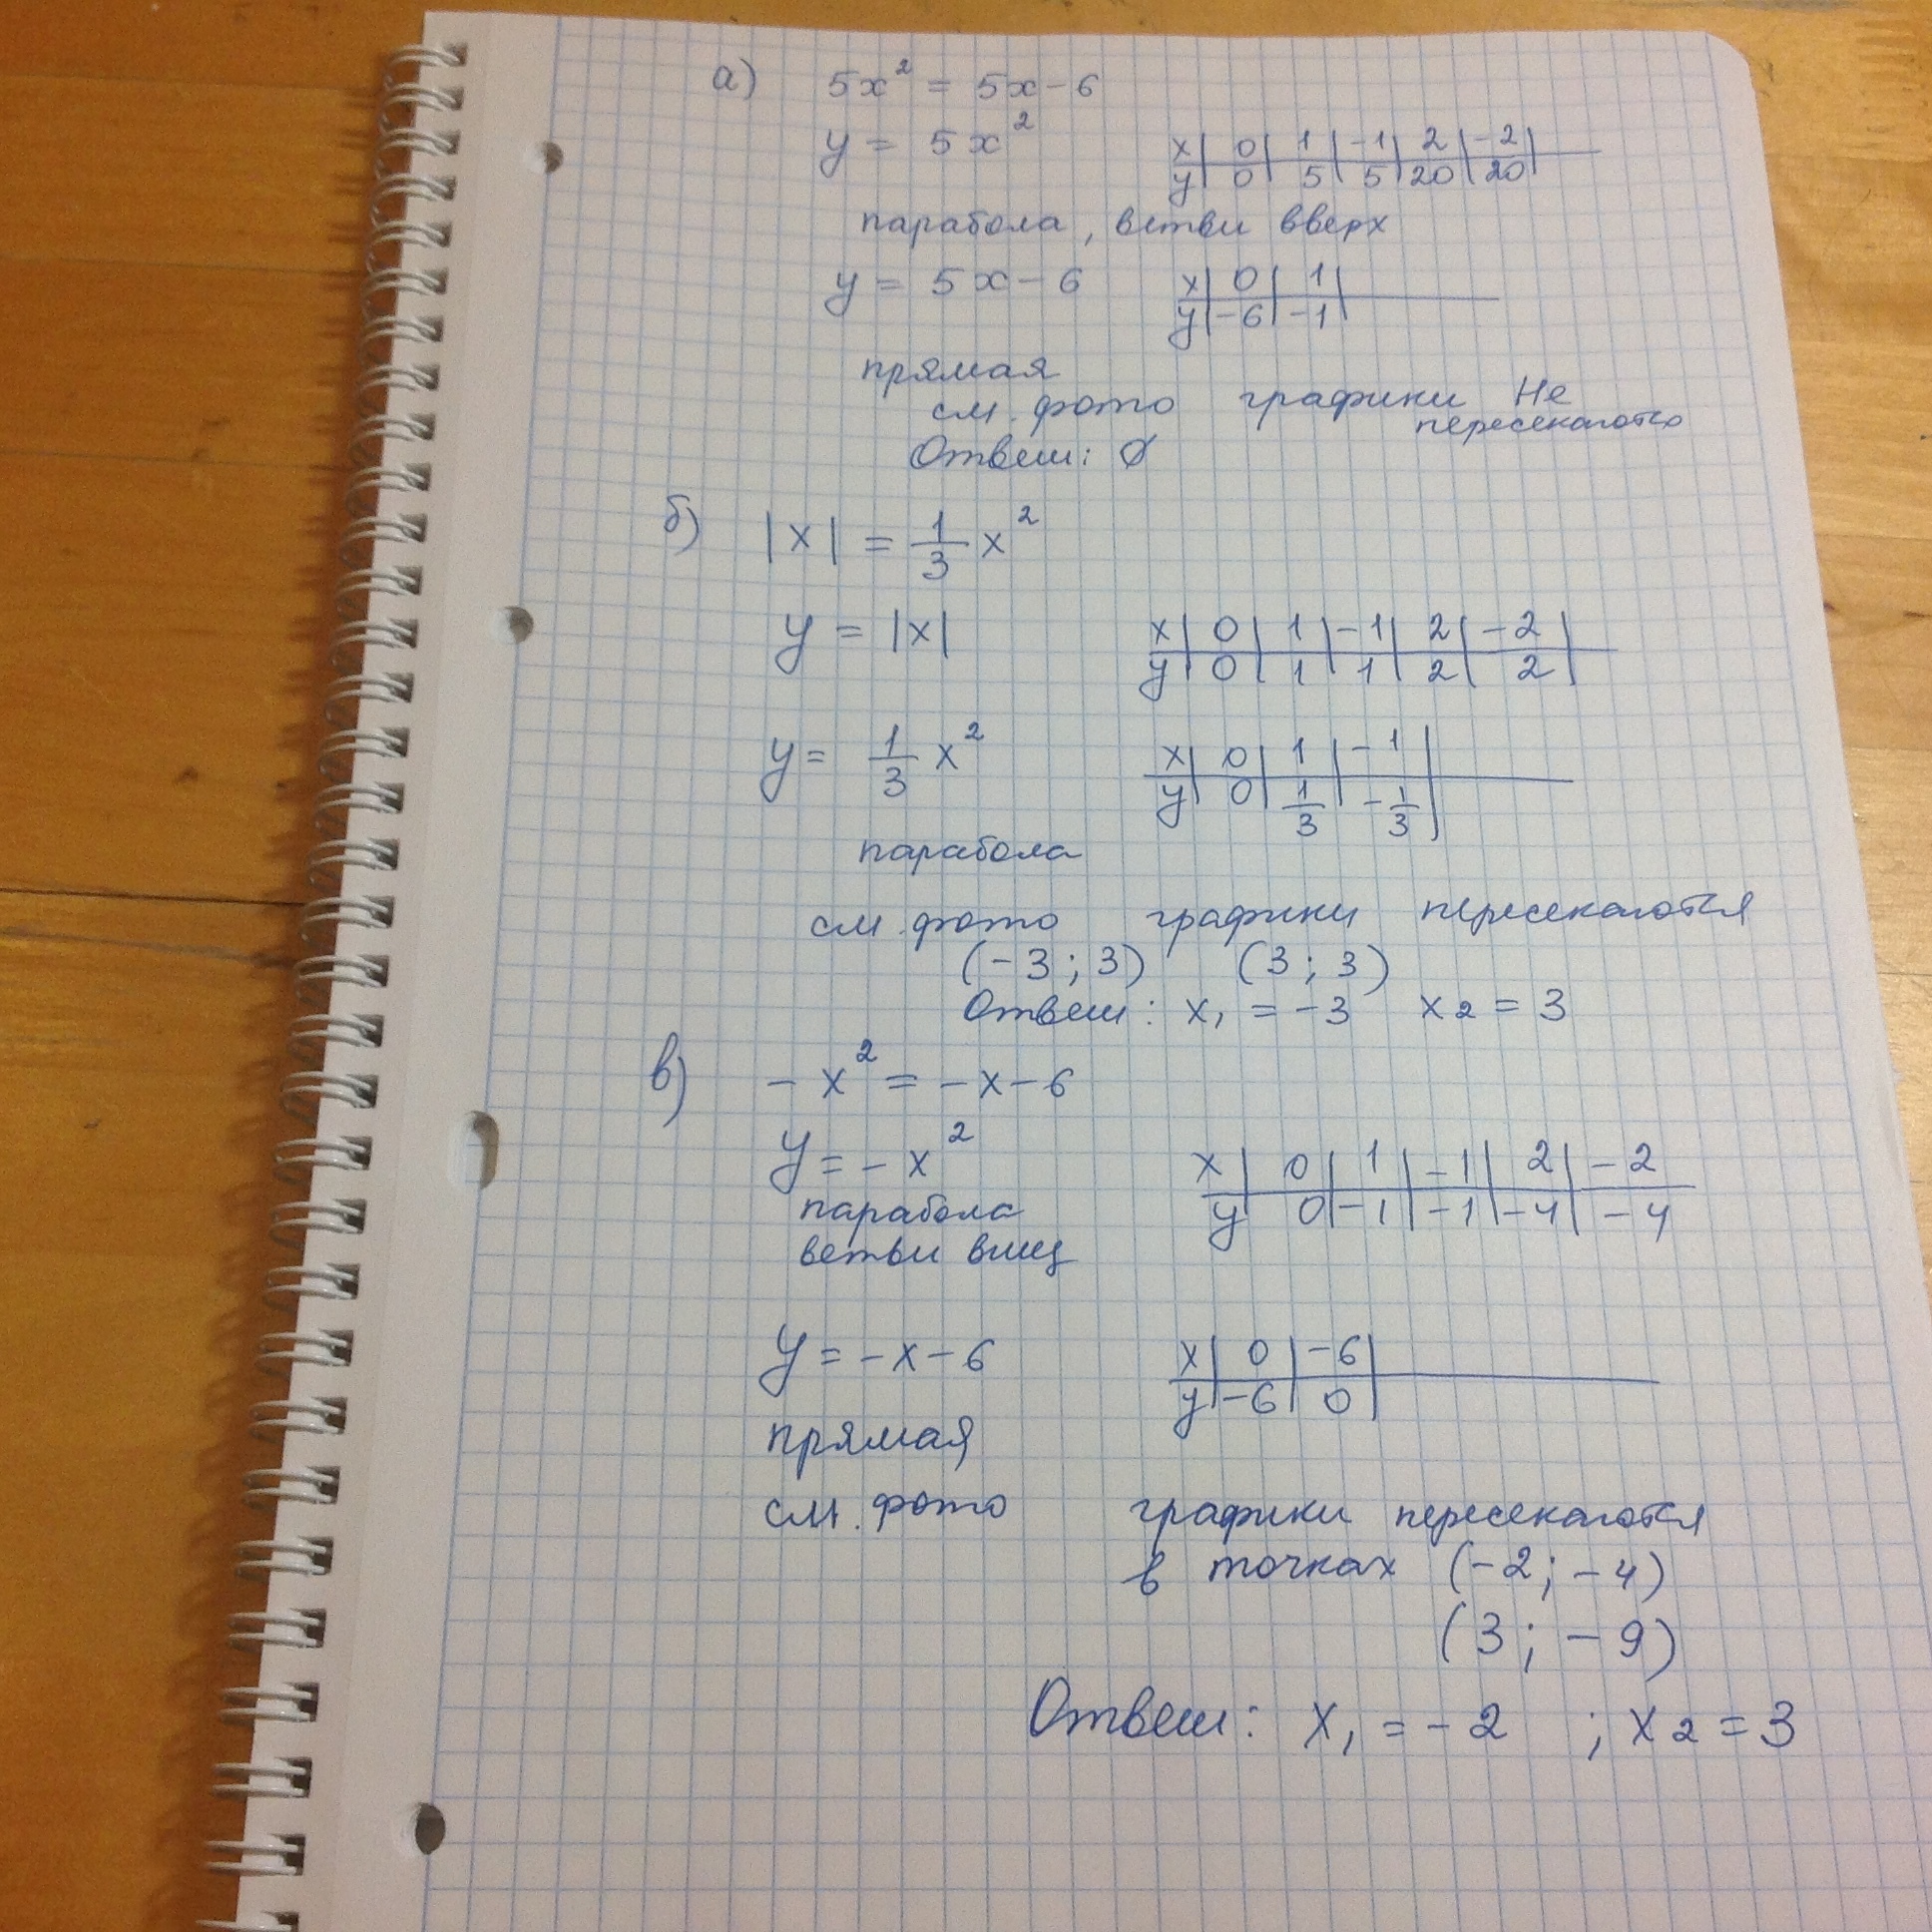 а) 5x² = 5x-6
y = 5x²
x | 0 | 1 | -1 | 2 | -2 |
y | 0 | 5 | 5 | 20 | 20 |
парабола, ветви вверх
y = 5x-6
x | 0 | 1 |
y | -6 | -1 |
прямая
см. фото графики Не
пересекаются
Ответ: ∅
б) |x| = 1/3 x²
y = |x|
x | 0 | 1 | -1 | 2 | -2 |
y | 0 | 1 | 1 | 2 | 2 |
y = 1/3 x²
x | 0 | 1 | -1 |
y | 0 | 1/3 | -1/3 |
парабола
см. фото графики пересекаются
(-3; 3) (3; 3)
Ответ: x₁ = -3 x₂ = 3
в) -x² = -x-6
y = -x²
x | 0 | 1 | -1 | 2 | -2
y 0 | -1 | -1 | -4 | -4
парабола
ветви вниз
y = -x-6
x | 0 | -6 |
y | -6 | 0 |
прямая
см. фото графики пересекаются
в точках (-2; -4)
(3; -9)
Ответ: x₁ = -2 ; x₂ = 3